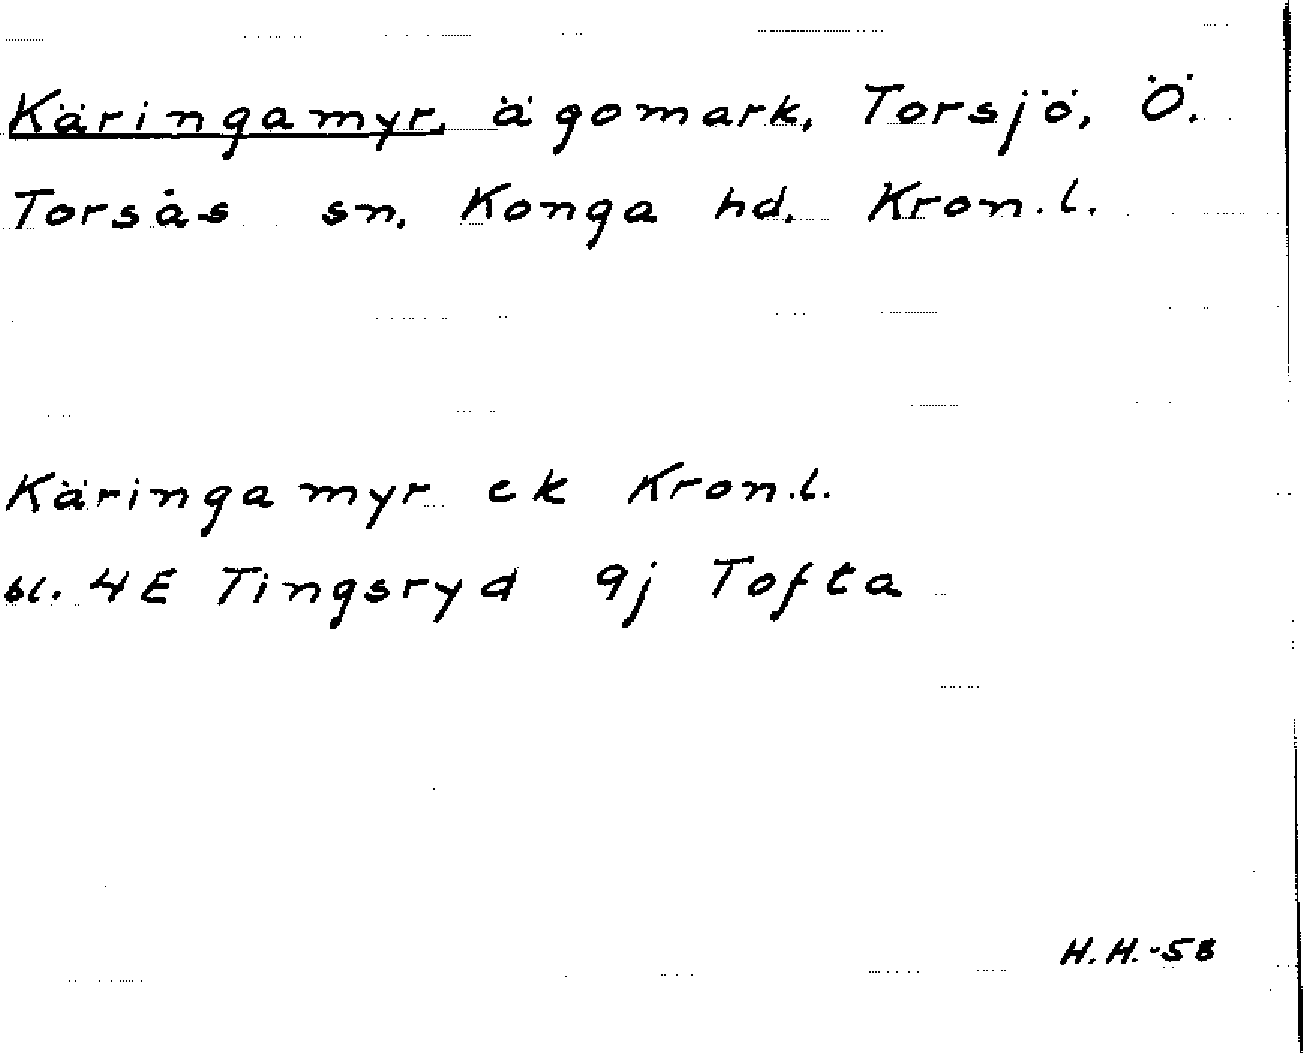 Käringamyr, ägomark, Torsjö, Ö.
Torsås sn. Konga hd. Kron.l.
Käringamyr ek Kron.l.
bl. 4E Tingsryd 9j Tofta
H.H.-58